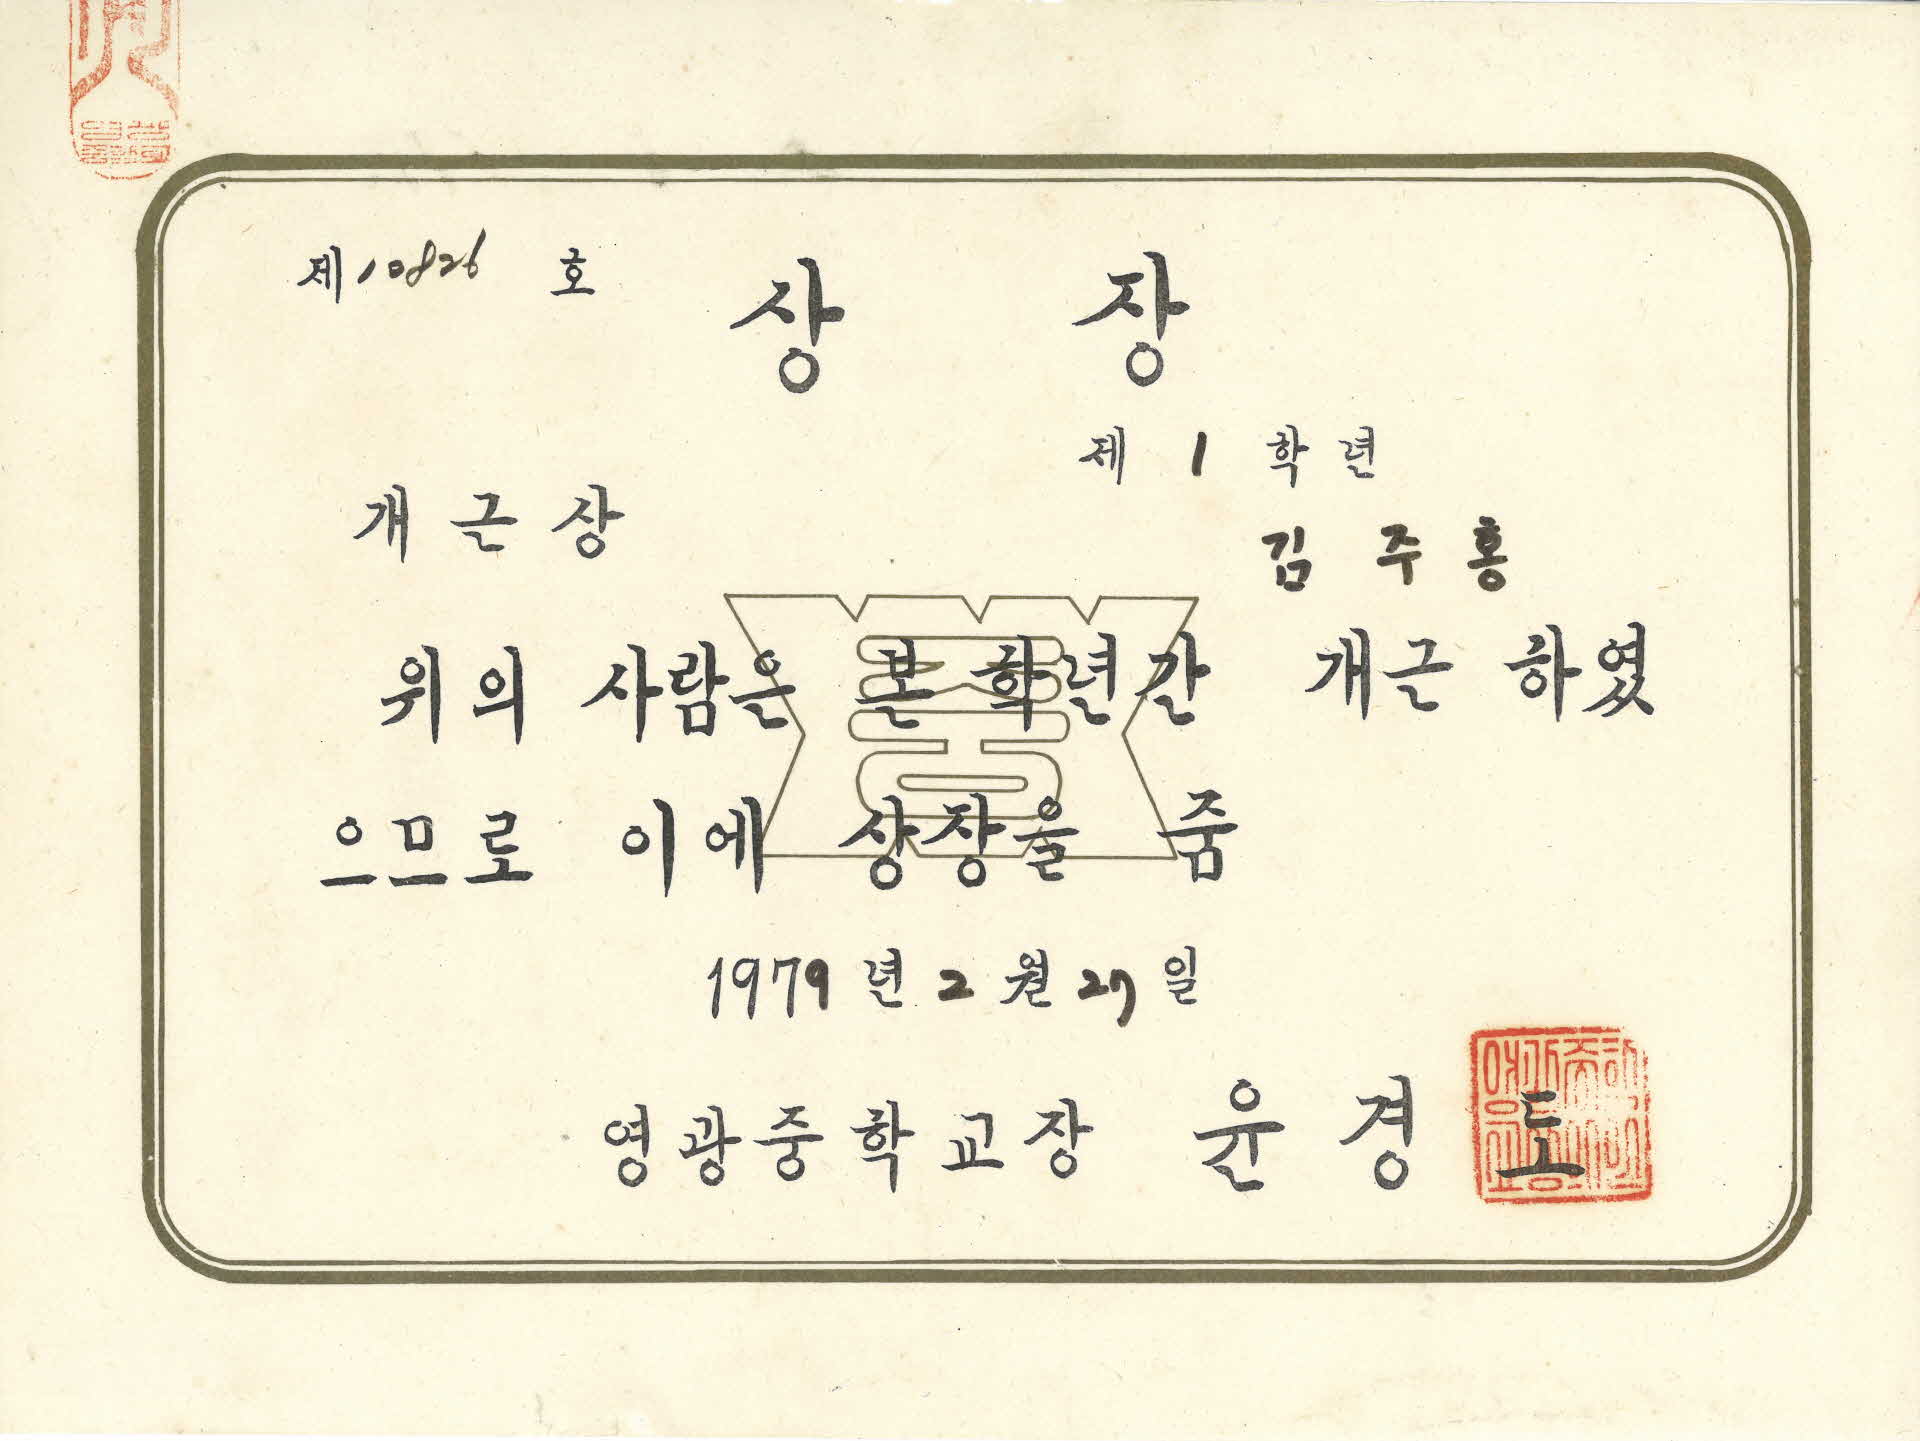 제10826 호
상 장
제 1 학년
개근상
김 주 홍
위의 사람은 본 학년간 개근 하였
으므로 이에 상장을 줌
1979년 2월 27일
영광중학교장 윤 경